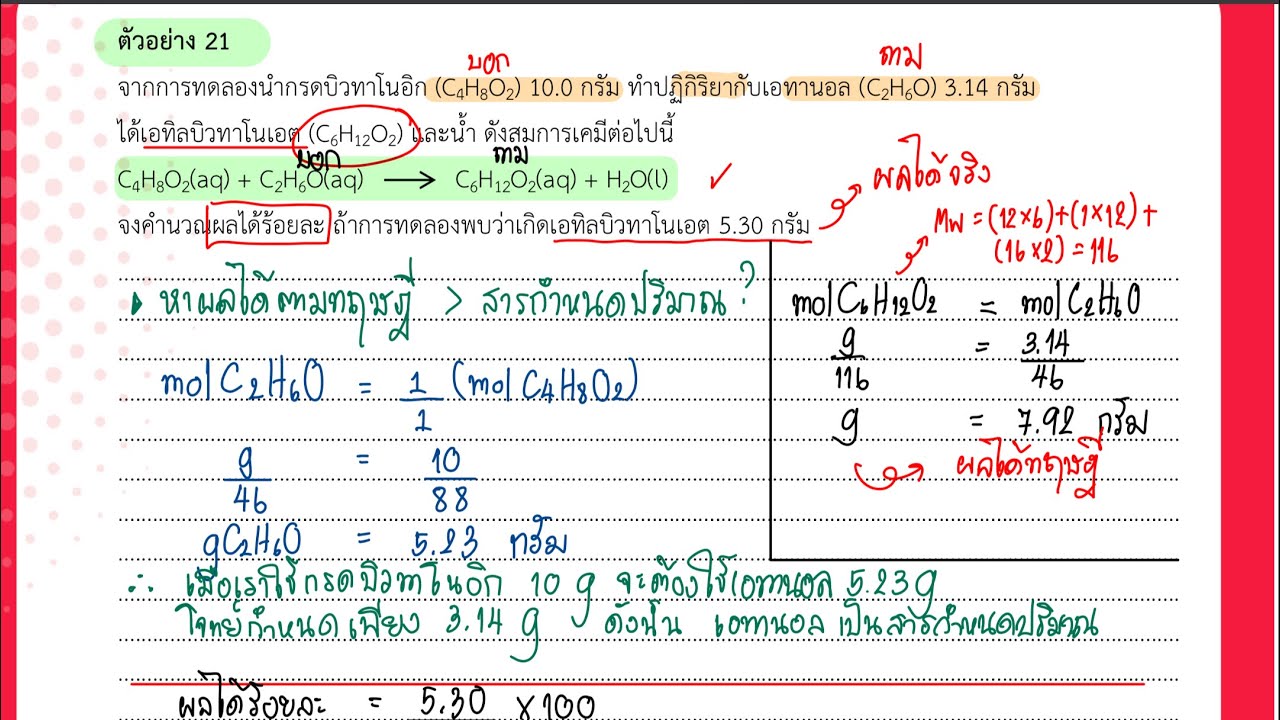 ตัวอย่าง 21
บอก ถาม
จากการทดลองนำกรดบิวทาโนอิก (C₄H₈O₂) 10.0 กรัม ทำปฏิกิริยากับเอทานอล (C₂H₆O) 3.14 กรัม
ได้เอทิลบิวทาโนเอต (C₆H₁₂O₂) และน้ำ ดังสมการเคมีต่อไปนี้
บอก ถาม
C₄H₈O₂(aq) + C₂H₆O(aq) ⟶ C₆H₁₂O₂(aq) + H₂O(l) ✓
จงคำนวณผลได้ร้อยละ ถ้าการทดลองพบว่าเกิดเอทิลบิวทาโนเอต 5.30 กรัม
ผลได้จริง
MW = (12×6)+(1×12)+
(16×2) = 116
• หาผลได้ตามทฤษฎี > สารกำหนดปริมาณ?
mol C₂H₆O = 1/1 (mol C₄H₈O₂)
g/46 = 10/88
gC₂H₆O = 5.23 กรัม
mol C₆H₁₂O₂ = mol C₂H₆O
g/116 = 3.14/46
g = 7.92 กรัม
ผลได้ทฤษฎี
∴ เมื่อเราใช้กรดบิวทาโนอิก 10 g จะต้องใช้เอทานอล 5.23g
โจทย์กำหนดเพียง 3.14 g ดังนั้น เอทานอลเป็นสารกำหนดปริมาณ
ผลได้ร้อยละ = 5.30 × 100